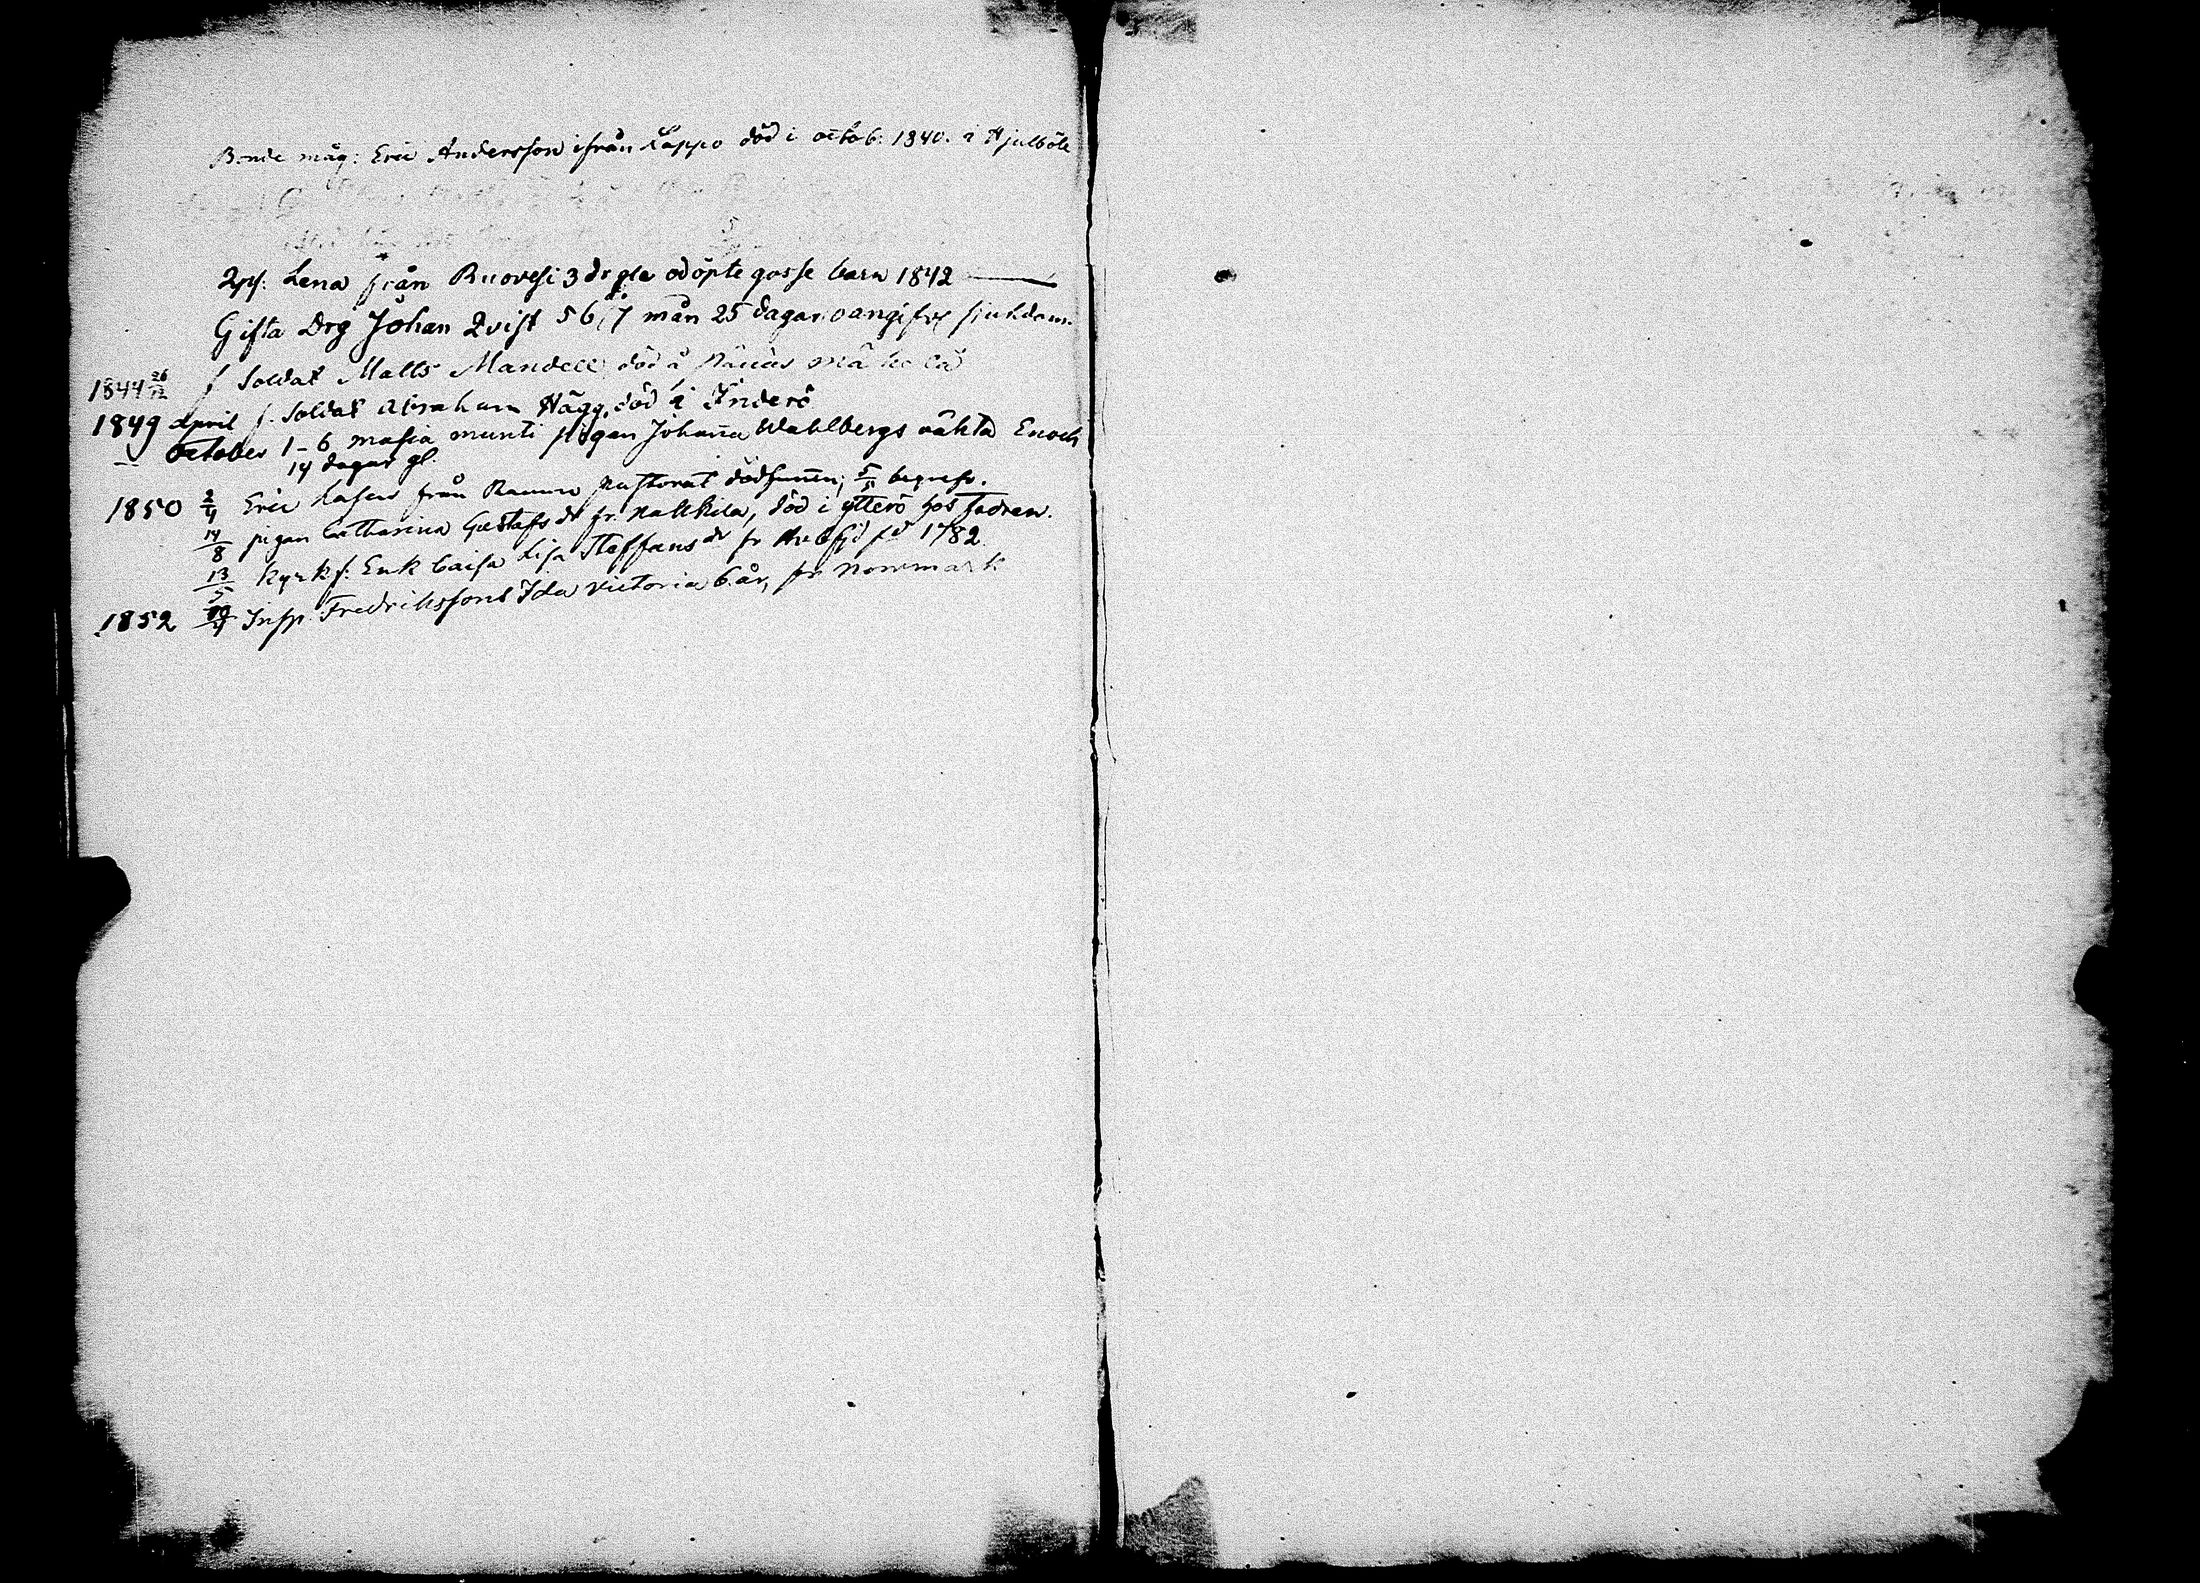 Bonde måg: Eric Andersson ifrån Lappo död i octob: 1840. i Hjulböle
Lena från Ruovesi 3 dr gla odöpte gosse barn 1842
Gifta Drg Johan Qvist 56 år 7 mån 25 dagar, oangifvi sjukdom.
1844 26/12 f Soldat Matts Mandell död å Mäkelä
1849 April f. Soldat Abraham Hägg, död i Inderö
— October 1-6 masia munti pigan Johanna Wahlbergs oäkta Enoch
14 dagar gl.
1850 2/4 Eric från Raumo pastorat dödfunnen; 5/5 begrafv.
14/8 pigan Catharina Gustafs dr fr. Nakkila, död i ytterö hos fadren.
13/5 kyrkf: Enk Caisa Lisa Staffans dr fr fd 1782.
1852 Insp: Fredrikssons Ida Victoria 6 år, fr Norrmark